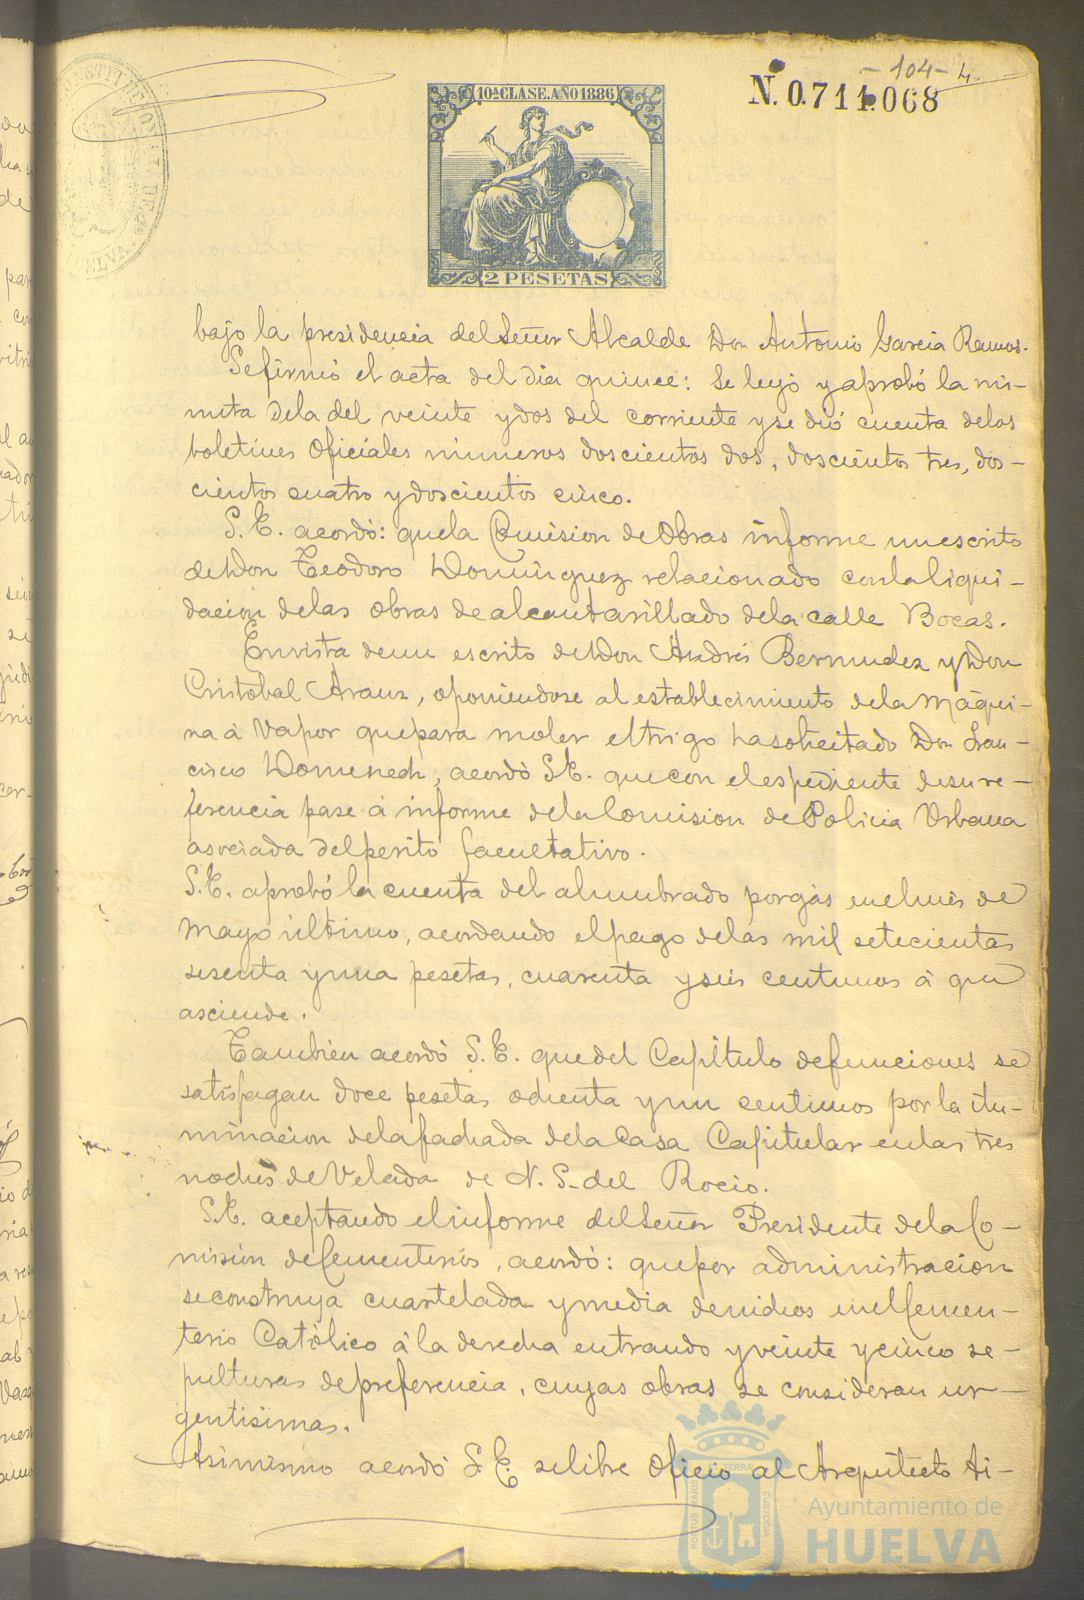 - 104 - 4.
N. 0.711.068
10ª CLASE. AÑO 1886
2 PESETAS
bajo la presidencia del Señor Alcalde Don Antonio Garcia Ramos.
Se firmó el acta del dia quince: Se leyó y aprobó la mi-
nuta dela del veinte y dos del corriente y se dió cuenta delos
boletines oficiales numeros doscientos dos, doscientos tres, dos-
cientos cuatro y doscientos cinco.
S. E. acordó: que la Comision de Obras informe un escrito
de Don Teodoro Dominguez relacionado con la liqui-
dacion delas obras de alcantarillado dela calle Bocas.
En vista de un escrito de Don Andrés Bermudez y Don
Cristobal Arauz, oponiendose al establecimiento dela Máqui-
na á vapor que para moler el trigo ha solicitado Don Fran-
cisco Domenech, acordó S.E. que con el espediente de su re-
ferencia pase á informe dela Comision de Policia Urbana
asociada del perito facultativo.
S.E. aprobó la cuenta del alumbrado por gas en el mes de
Mayo último, acordando el pago delas mil setecientas
sesenta y una pesetas, cuarenta y seis centimos á que
asciende.
Tambien acordó S.E. que del Capítulo de funciones se
satisfagan doce pesetas ochenta y un centimos por la ilu-
minacion dela fachada dela Casa Capitular en las tres
noches de Velada de N. S. del Rocio.
S.E. aceptando el informe del Señor Presidente dela Co-
mision de Cementerios, acordó: que por administracion
se construya cuartelada y media de nichos en el Cemen-
terio Católico á la derecha entrando y veinte y cinco se-
pulturas de preferencia, cuyas obras se consideran ur-
gentisimas.
Asimismo acordó S.E. se libre oficio al Arquitecto Ti-
Ayuntamiento de
HUELVA